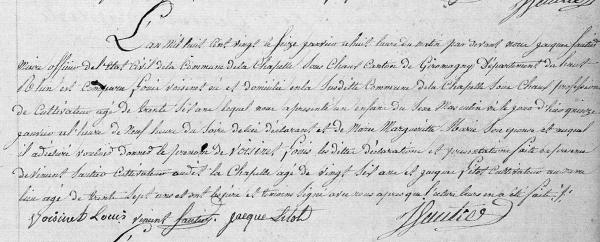 L'an mil huit cent vingt le seize janvier a huit heure du matin par devant nous jacque
Maire officier de l'etat civil de la Commune de la Chapelle Sous Chaux Canton de Giromagny Département du haut
Rhin est Comparu Louis voisinet né et domicilié en la Susdite Commune de la Chapelle Sous Chaux profession
de Cultivateur agé de trente Six ans lequel nous a presenté un enfant du Sexe Masculin né le jour d'hier quinze
janvier a heure de Neuf heure du Soire de lui déclarant et de Marie Margueritte et auquel
il a declaré vouloir donner le prenom de voisinet, Louis les dittes déclaration et presentation faite en presence
de vincent Cultivateur au dit la Chapelle agé de vingt Six ans et jacque Cultivateur au même
lieu agé de trente Sept ans et ont le pere et temoins signé avec nous apres que l'acte leur en a été fait
voisinet Louis vincent jacque